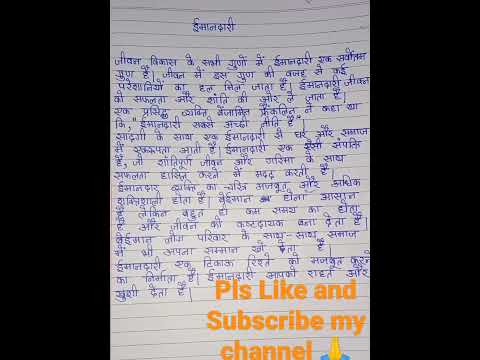 ईमानदारी
जीवन विकास के सभी गुणों में ईमानदारी एक सर्वोत्तम
गुण है। जीवन में इस गुण की वजह से कई
परेशानियों का हल मिल जाता है। ईमानदारी जीवन
को सफलता और शांति की और ले जाता है।
एक प्रसिद्ध व्यक्ति बेंजामिन फ्रैंकलिन ने कहा था
कि, "ईमानदारी सबसे अच्छी नीति है"
सादगी के साथ एक ईमानदारी से घर और समाज
में एकरूपता आती है। ईमानदारी एक ऐसी संपत्ति
है, जो शांतिपूर्ण जीवन और गरिमा के साथ
सफलता हासिल करने में मदद करती है।
ईमानदार व्यक्ति का चरित्र मजबूत और अधिक
शक्तिशाली होता है। बेईमान होना आसान
है लेकिन बहुत ही कम समय का होता
है और जीवन को कष्टदायक बना देता है।
बेईमान लोग परिवार के साथ-साथ समाज
में भी अपना सम्मान खो देता है
ईमानदारी एक टिकाऊ रिश्ते को मजबूत करने
का निर्माता है। ईमानदारी आपको राहत और
खुशी देता है।
Pls Like and
Subscribe my
channel 🙏